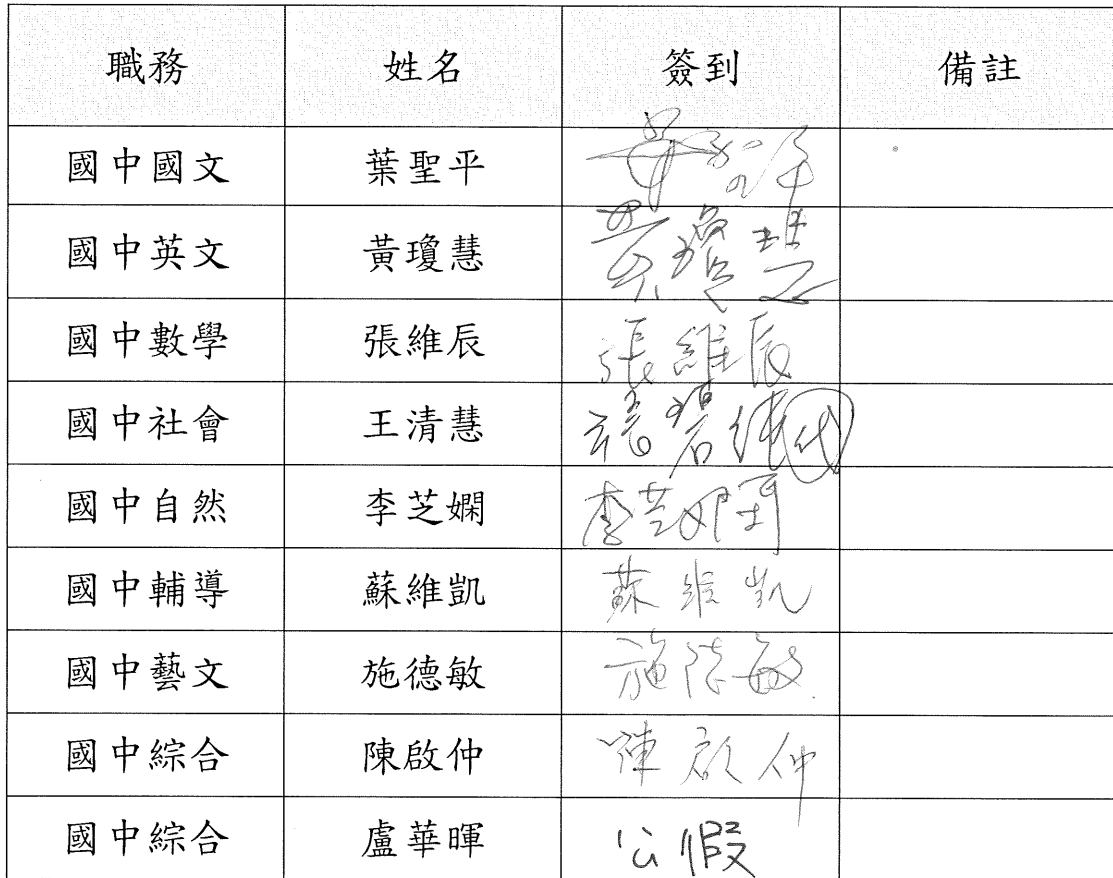 職務 姓名 簽到 備註
國中國文 葉聖平
國中英文 黃瓊慧 黃瓊慧
國中數學 張維辰 張維辰
國中社會 王清慧 代
國中自然 李芝嫻 李芝嫻
國中輔導 蘇維凱 蘇維凱
國中藝文 施德敏 施德敏
國中綜合 陳啟仲 陳啟仲
國中綜合 盧華暉 公假